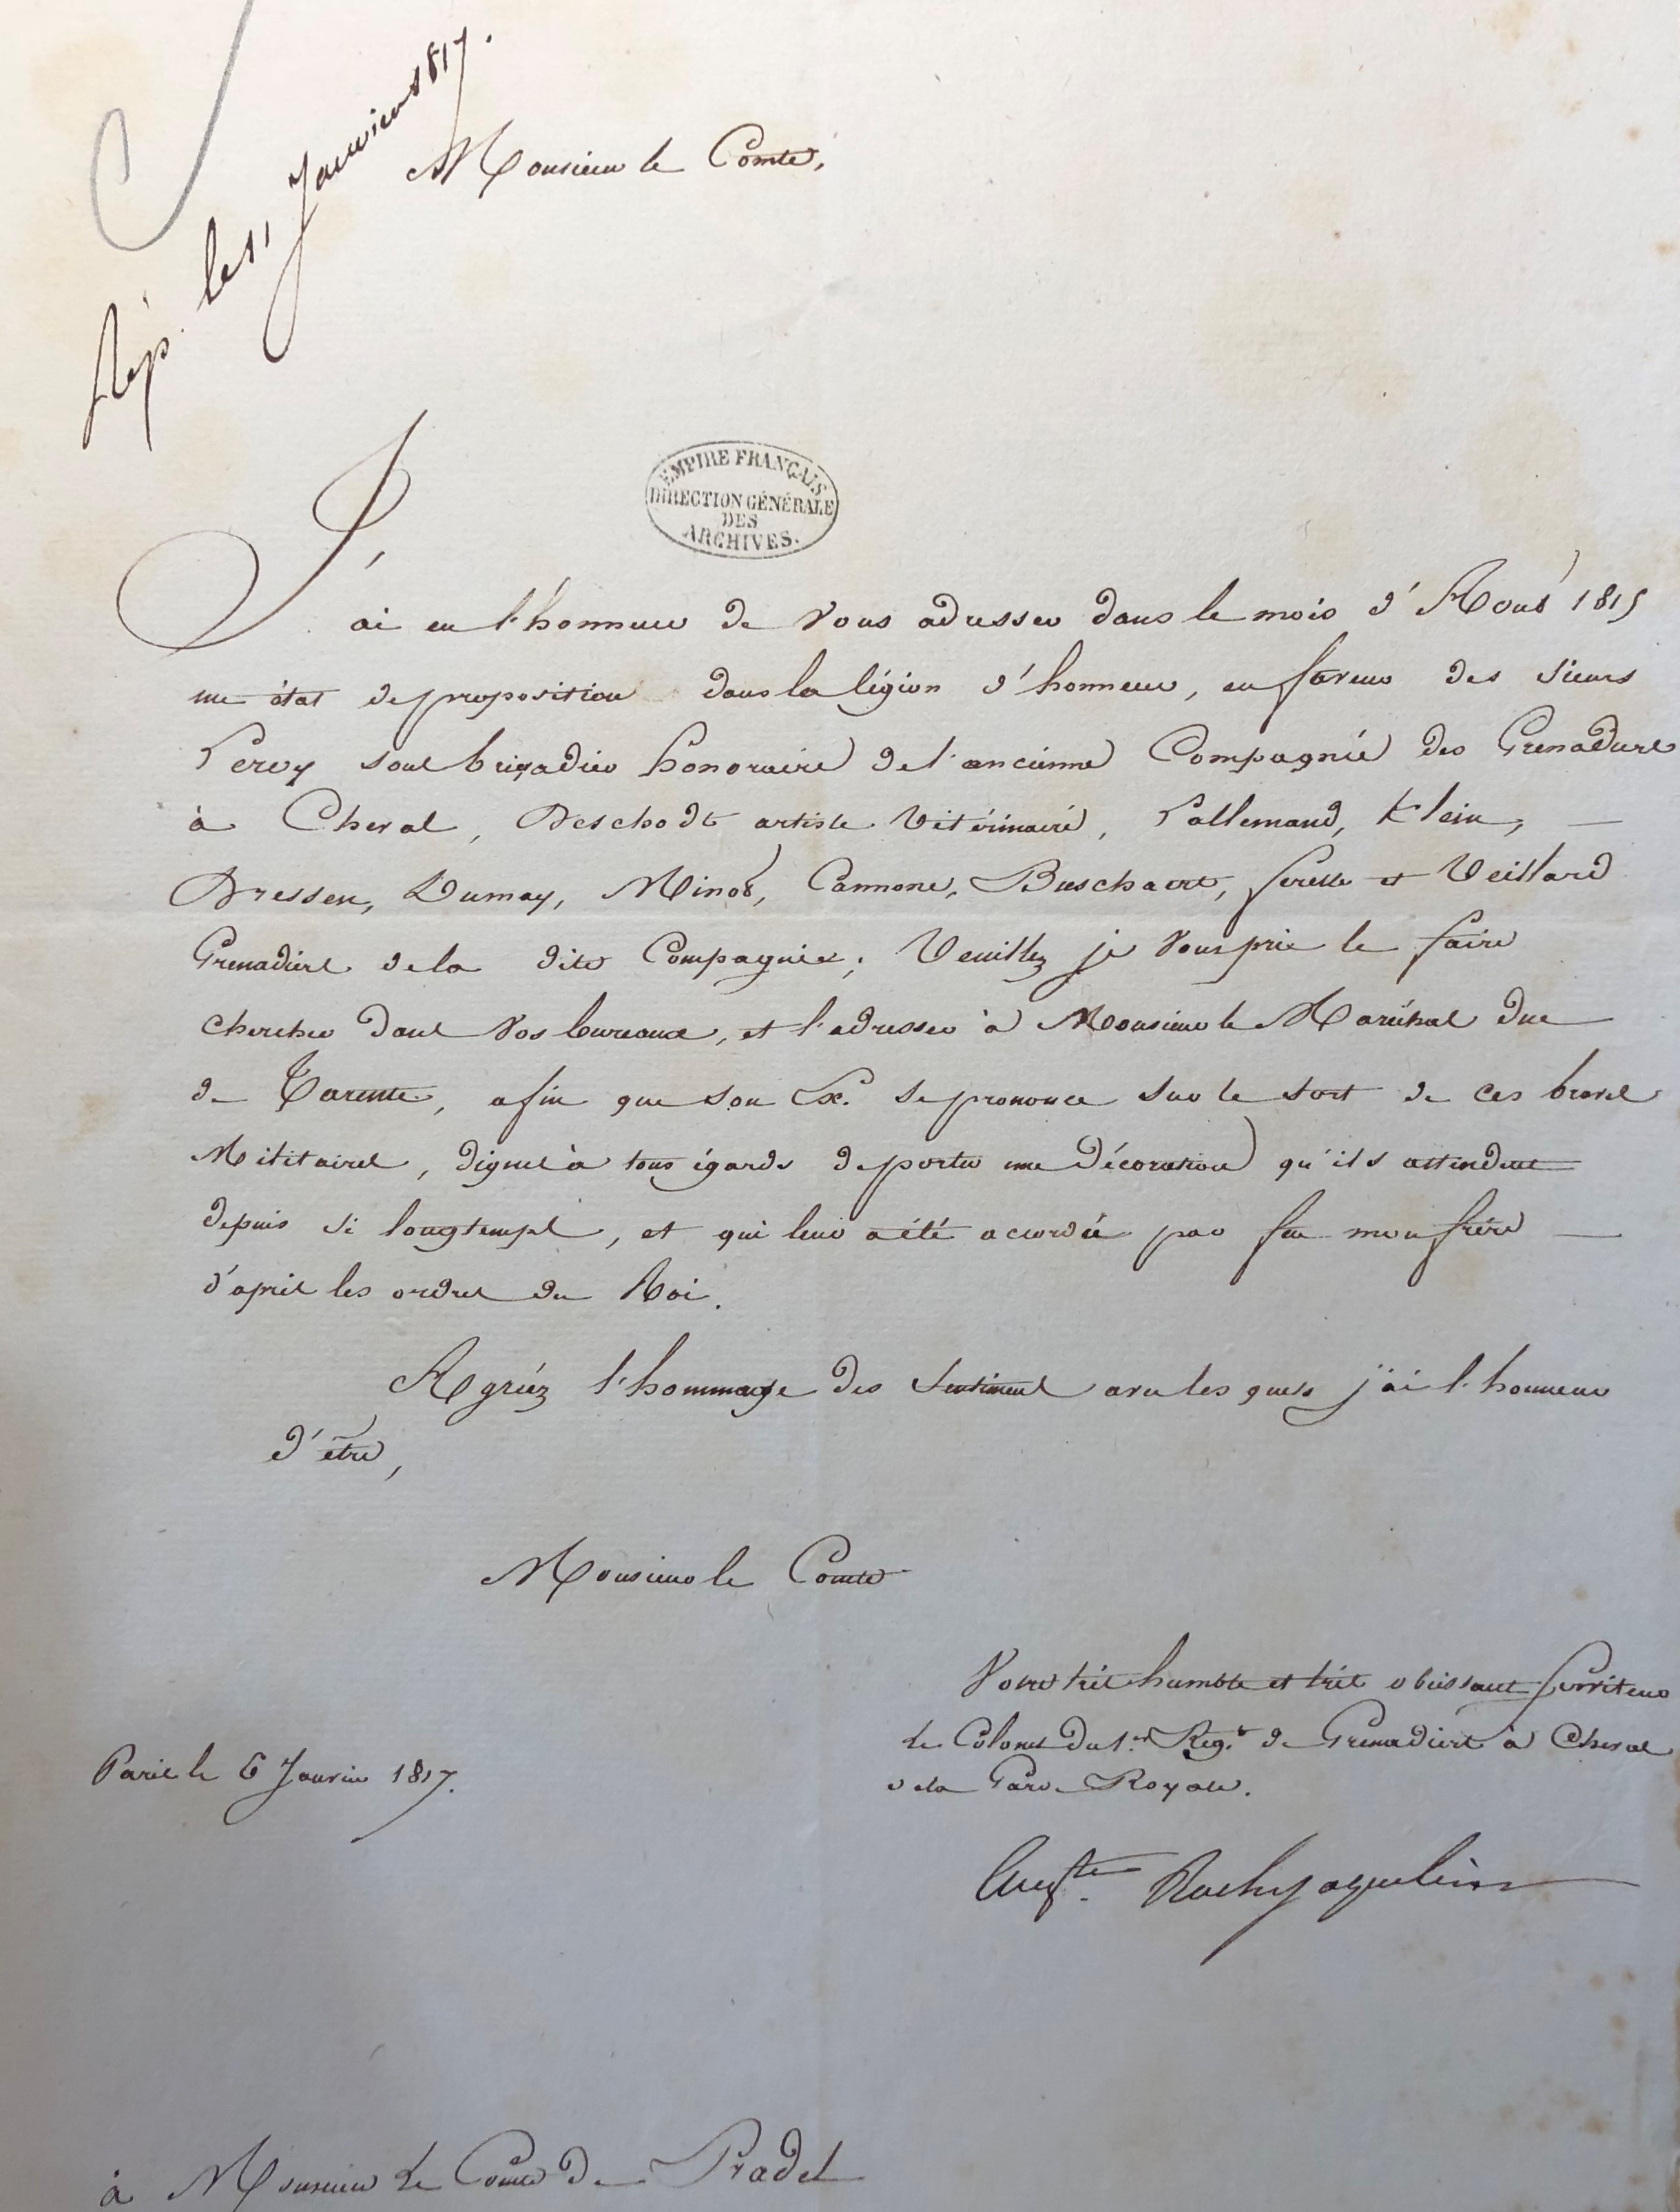 Rép. le 11 Janvier 1817.
Monsieur le Comte,
EMPIRE FRANÇAIS
DIRECTION GÉNÉRALE
DES
ARCHIVES.
J'ai eu l'honneur de Vous adresser dans le mois d'Août 1815
un état de proposition dans la légion d'honneur, en faveur des Sieurs
Leroy sous brigadier honoraire de l'ancienne Compagnie des Grenadiers
à Cheval, Deschodt artiste Vétérinaire, Lallemand, Klein,
Dressen, Dumay, Minot, Cannone, Buschaert, et Veillard
Grenadiers de la dite Compagnie; Veuillez je Vous prie le faire
chercher dans Vos bureaux, et l'adresser à Monsieur le Maréchal Duc
de Tarente, afin que son Ex. se prononce sur le sort de ces braves
Militaires, dignes à tous égards de porter une Décoration qu'ils attendent
depuis si longtemps, et qui leur a été acordée par feu mon frère
d'après les ordres du Roi.
Agréez l'hommage des Sentimens avec les quels j'ai l'honneur
d'être,
Monsieur le Comte
Votre très humble et très obéissant Serviteur
Le Colonel du 1.er Reg.t de Grenadiers à Cheval
de la Garde Royale.
Paris le 6 Janvier 1817.
Aug.te Rochejaquelein
à Monsieur Le Comte De Pradel